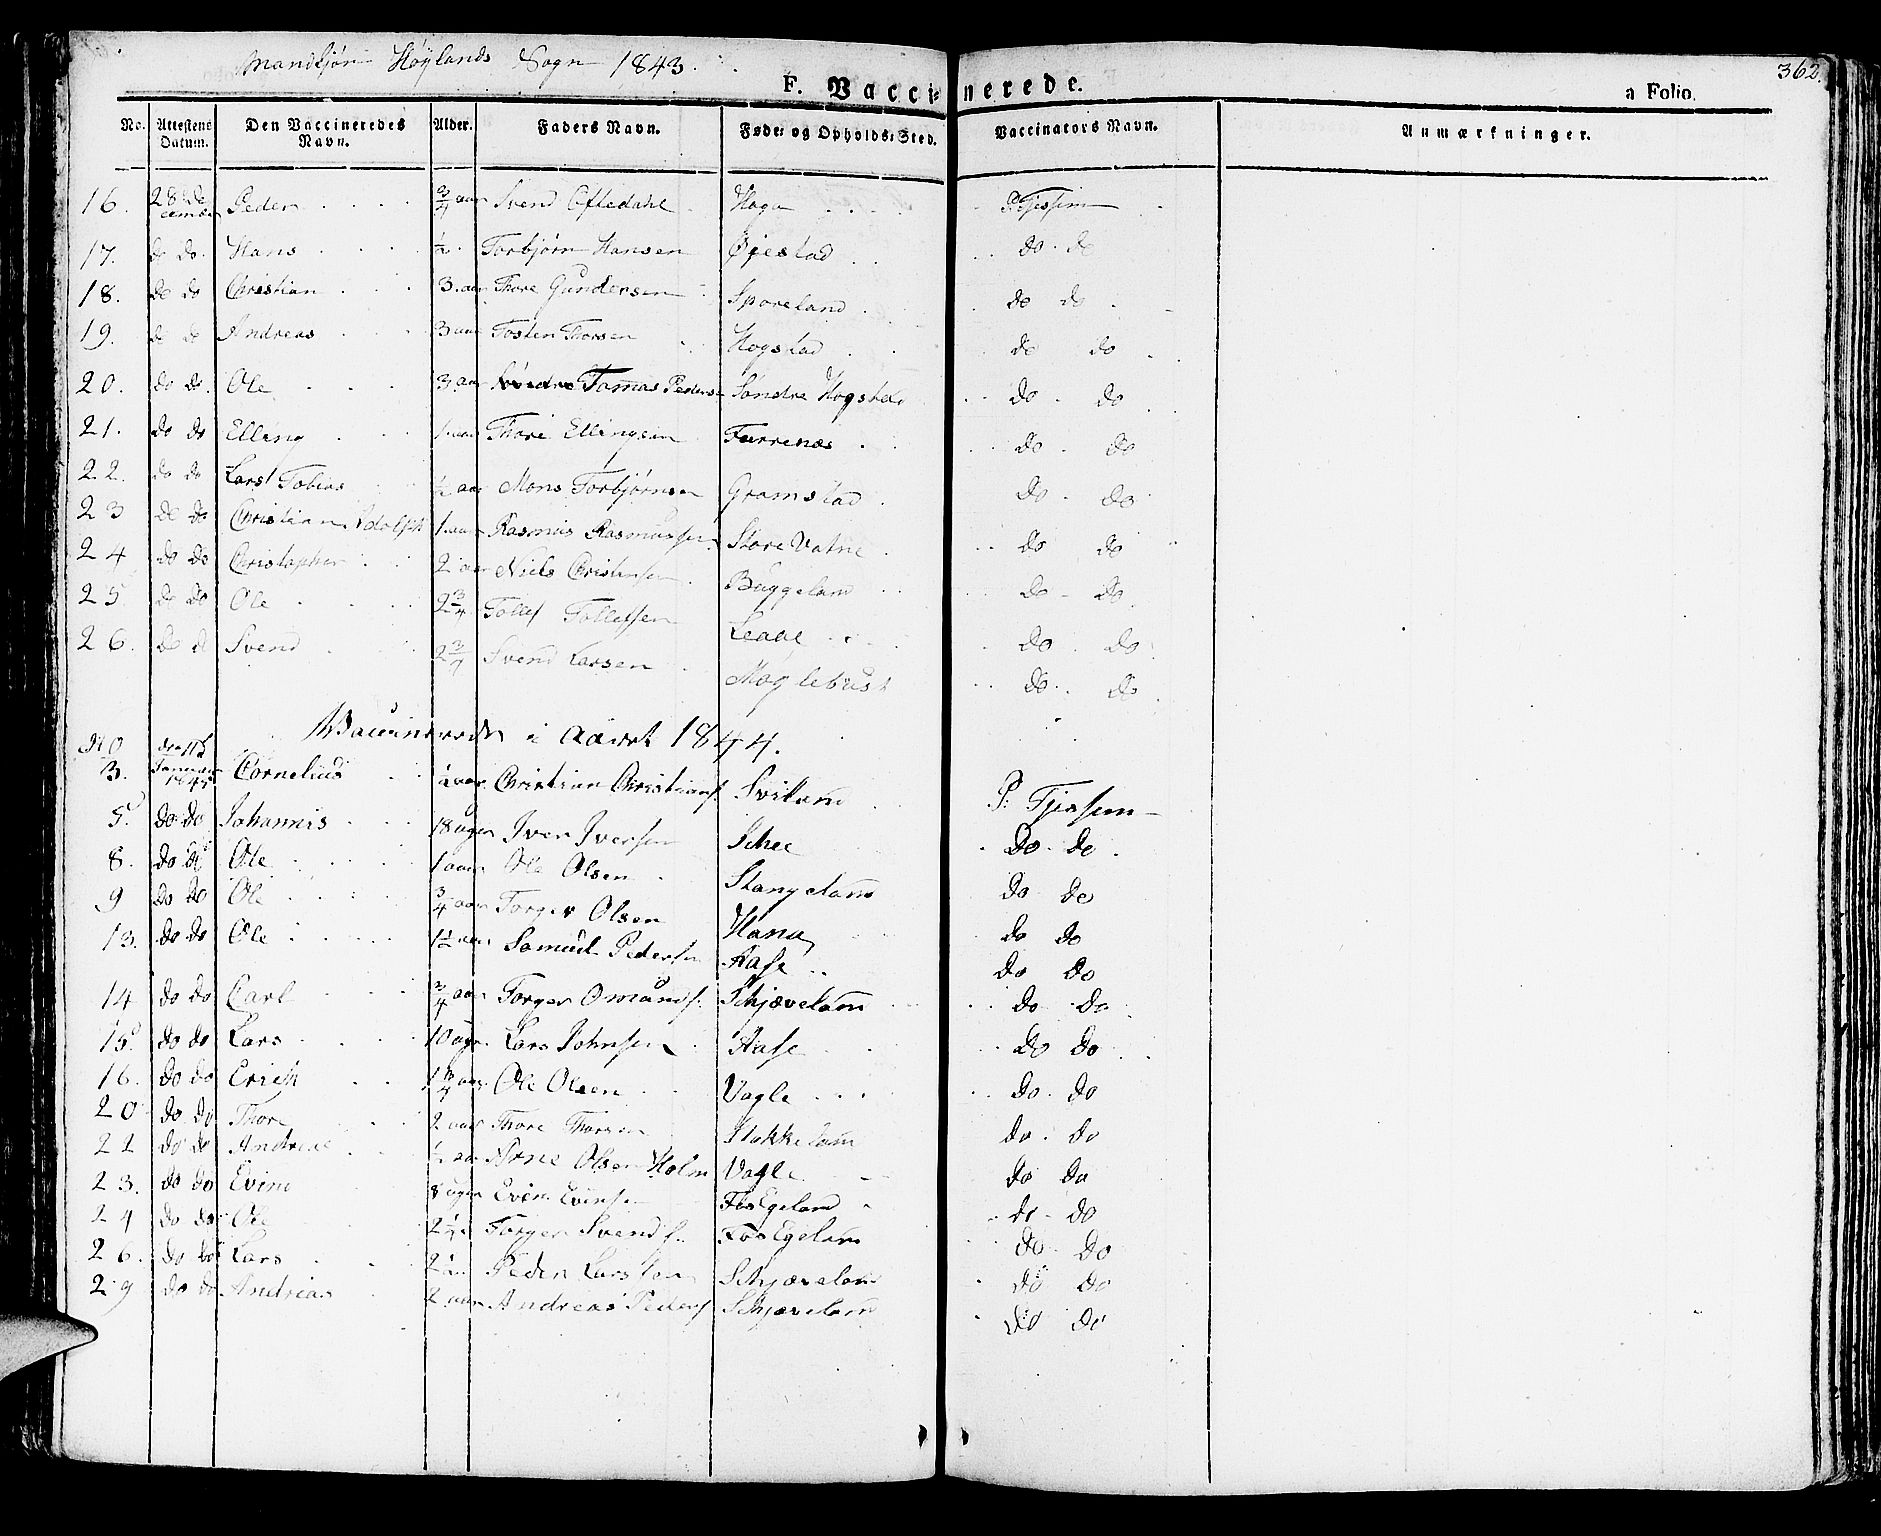 Mandkjøn Høylands Sogn 1843.
362.
F. Vaccinerede.
a Folio.
No. Attestens Datum. Den Vaccineredes Navn. Alder. Faders Navn. Føde- og Opholds-Sted. Vaccinators Navn. Anmærkninger.
16. 28de December Peder 3/4 aar Svend Oftedahl Hogn P. Tjessem
17. do do. Hans 1/2 Torbjørn Hansen Øiestad do. do
18. do do Christian 3. aar Thore Gundersen Sporeland do do
19. do do Andreas 3 aar Tosten Thorsen Hogstad do do
20. do do. Ole 3. aar Tomas Peders Søndre Hogstad do. do
21. do do Elling 1. aar Thore Ellingsen Furrenæs do. do
22. do do Lars Tobias 1/2 aar Mons Torbjørnsen Gramstad do. do
23 do do Christian Adolph 1. aar Rasmus Rasmussen Store Vatne do do
24 do do Christopher 2 aar Niels Christensen Buggeland do. do
25 do do Ole 2 3/4 Tollef Tollefsen Leaae do. do
26. do do Svend 2 3/4 Svend Larsen Møglebust do. do
Vaccinerede i Aaret 1844.
No 3. Januar Cornelius 1/2 aar Christian Christians. Sviland P: Tjessem
5. do. do Johannis 18 uger Iver Iversen Schee do. do
8. do do Ole 1 aar Ole Olsen Stangeland do. do
9 do do Ole 3/4 aar Torger Olsen Hana do do
13. do do Ole 1 1/2 aar Samuel Pedersen Aase do do
14 do do Carl 3/4 aar Torger Omunds. Schjæveland do do
15. do do Lars 10 uger Lars Johnsen Aase do do
16. do do Erich 1 3/4 aar Ole Olsen Vagle do. do
20 do do Thore 2 aar Thore Thorsen Stokkeland do. do
21 do do Andreas 1/2 aar Arne Olsen Holm Vagle do do
23. do do Evind 8 uger Even Evensen Fos Egeland do. do
24 do do Ole 2 1/2 Torger Svends. Fos Egeland do. do
26. do do Lars 2 1/2 Peder Larsen Schjæveland do do
29 do do Andreas 2 aar Andreas Peders Schjæveland do do